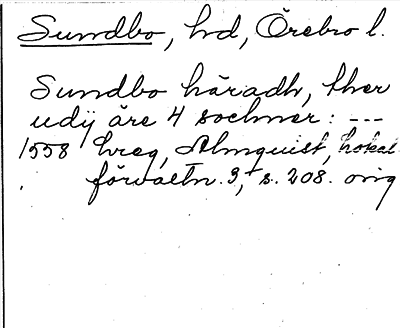 Sundbo, hd, Örebro l.
Sundbo häradh, ther
udij äre 4 sochner: ---
1558 hreg, Almquist, Lokal-
förvaltn. 3, s. 208. orig